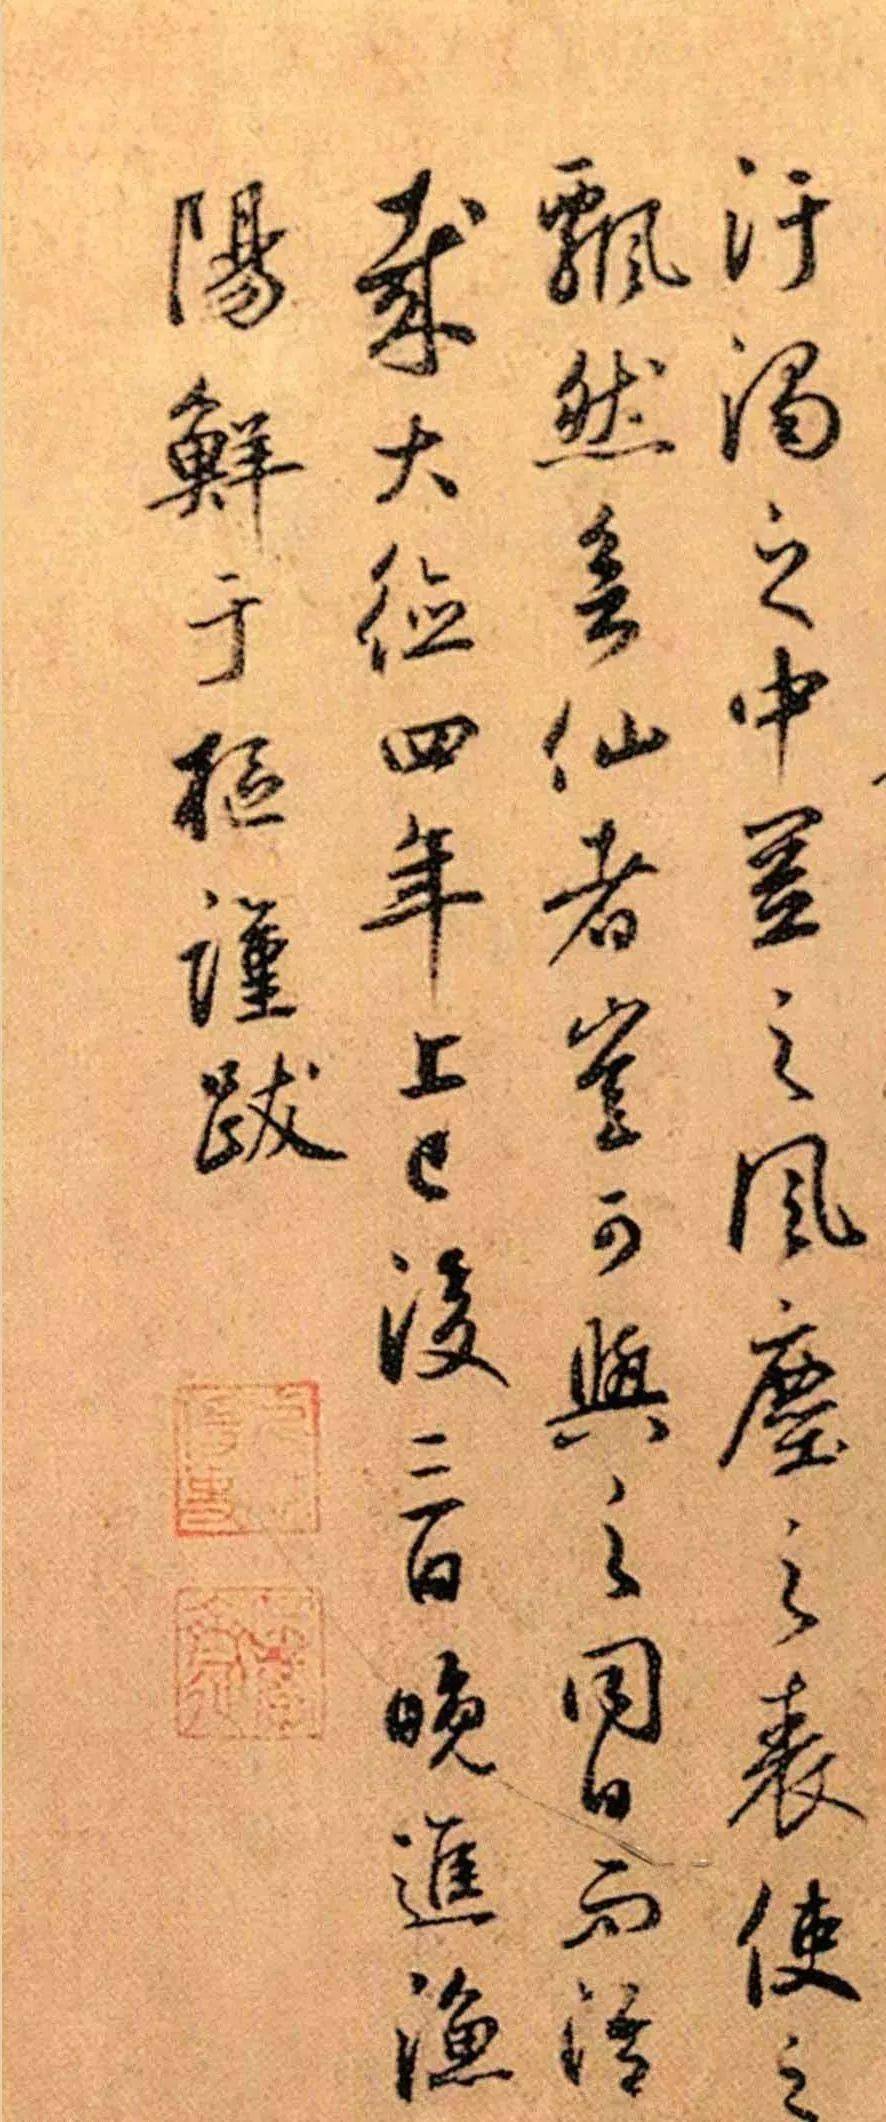 汙濁之中置之風塵之表使之
飄然若仙者豈可與之同日而語
哉大德四年上巳後三日晚進漁
陽鮮于樞謹跋